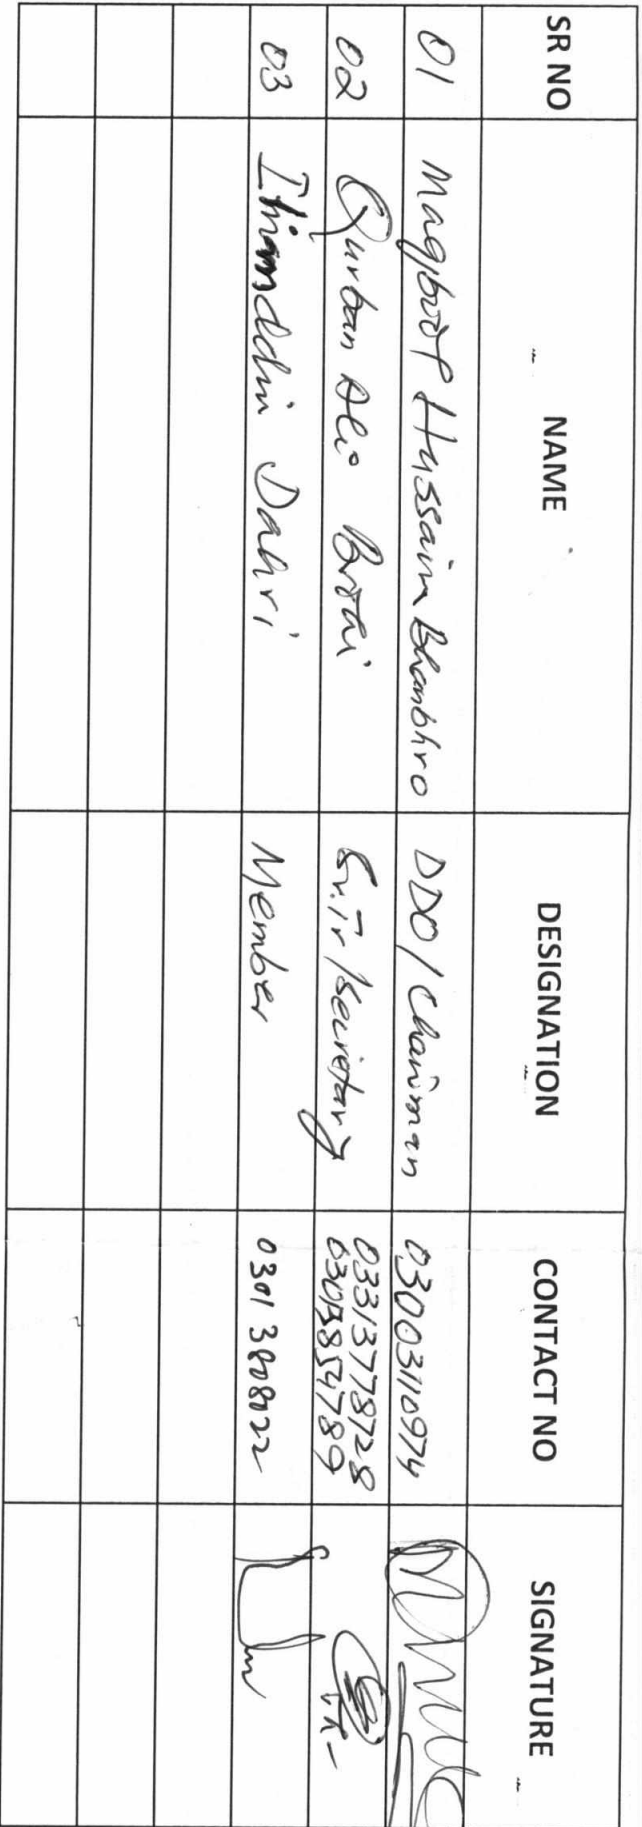 SR NO NAME DESIGNATION CONTACT NO SIGNATURE
01 Maqbool Hussain Bhanbhro DDO/Chairman 03003110974
02 Qurban Ali Secretary 03313778728
03 Dahri Member 03013808022